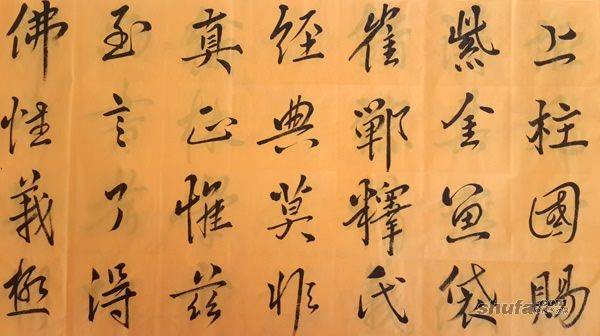 上柱國賜
紫金魚袋
崔鄲釋氏
經典莫非
真正惟茲
至言了得
佛性義極
shufa